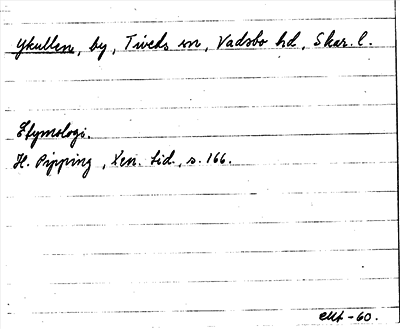 Ykullen, by, Tiveds sn, Vadsbo hd, Skar. l.
Etymologi.
H. Pipping, Xen. Lid., s. 166.
-60.